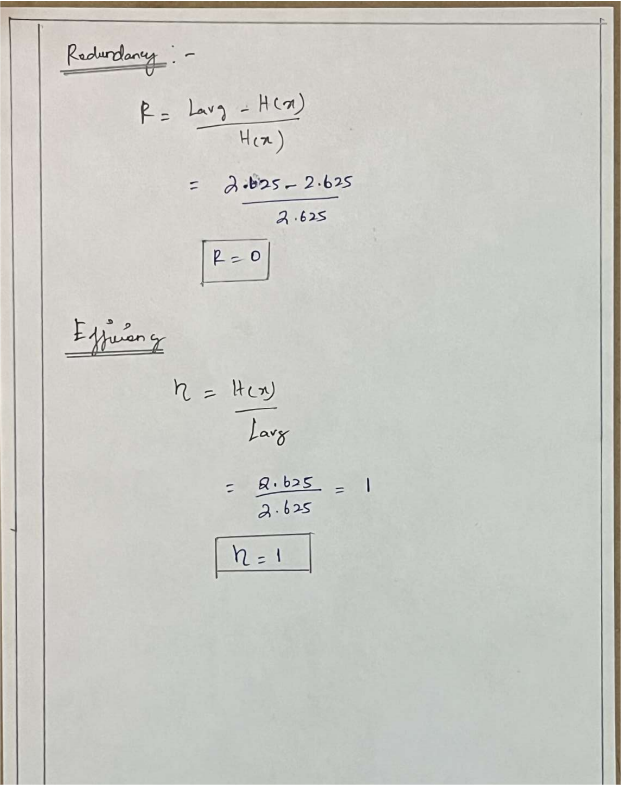 Redundancy :-
R = Lavg - H(x)
H(x)
= 2.625 - 2.625
2.625
R = 0
Efficiency
η = H(x)
Lavg
= 2.625 = 1
2.625
η = 1